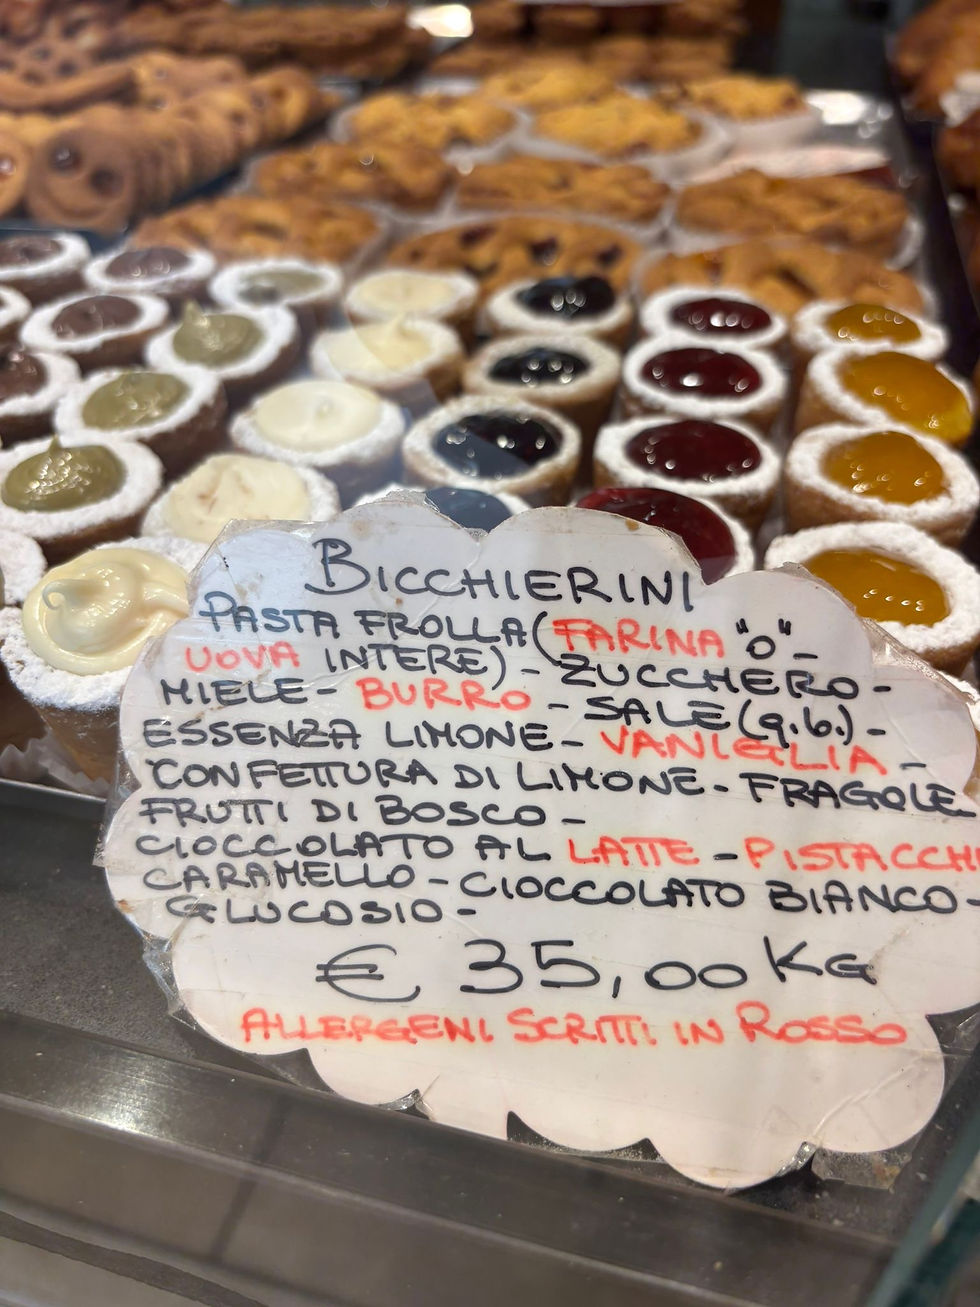 BICCHIERINI
PASTA FROLLA (FARINA "0"-
UOVA INTERE) - ZUCCHERO -
MIELE - BURRO - SALE (q.b.) -
ESSENZA LIMONE - VANIGLIA -
CONFETTURA DI LIMONE - FRAGOLE
FRUTTI DI BOSCO -
CIOCCOLATO AL LATTE - PISTACCHI
CARAMELLO - CIOCCOLATO BIANCO -
GLUCOSIO -
€ 35,00 KG
ALLERGENI SCRITTI IN ROSSO